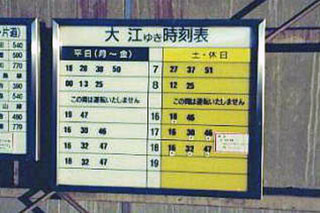 大江ゆき時刻表
平日(月～金) 土・休日
18 28 38 50 7 27 37 51
00 13 25 8 12 25
この間は運転いたしません この間は運転いたしません
18 47 16 18 46
16 30 46 17 16 30 46
16 32 47 18 16 32 47
18 32 47 19